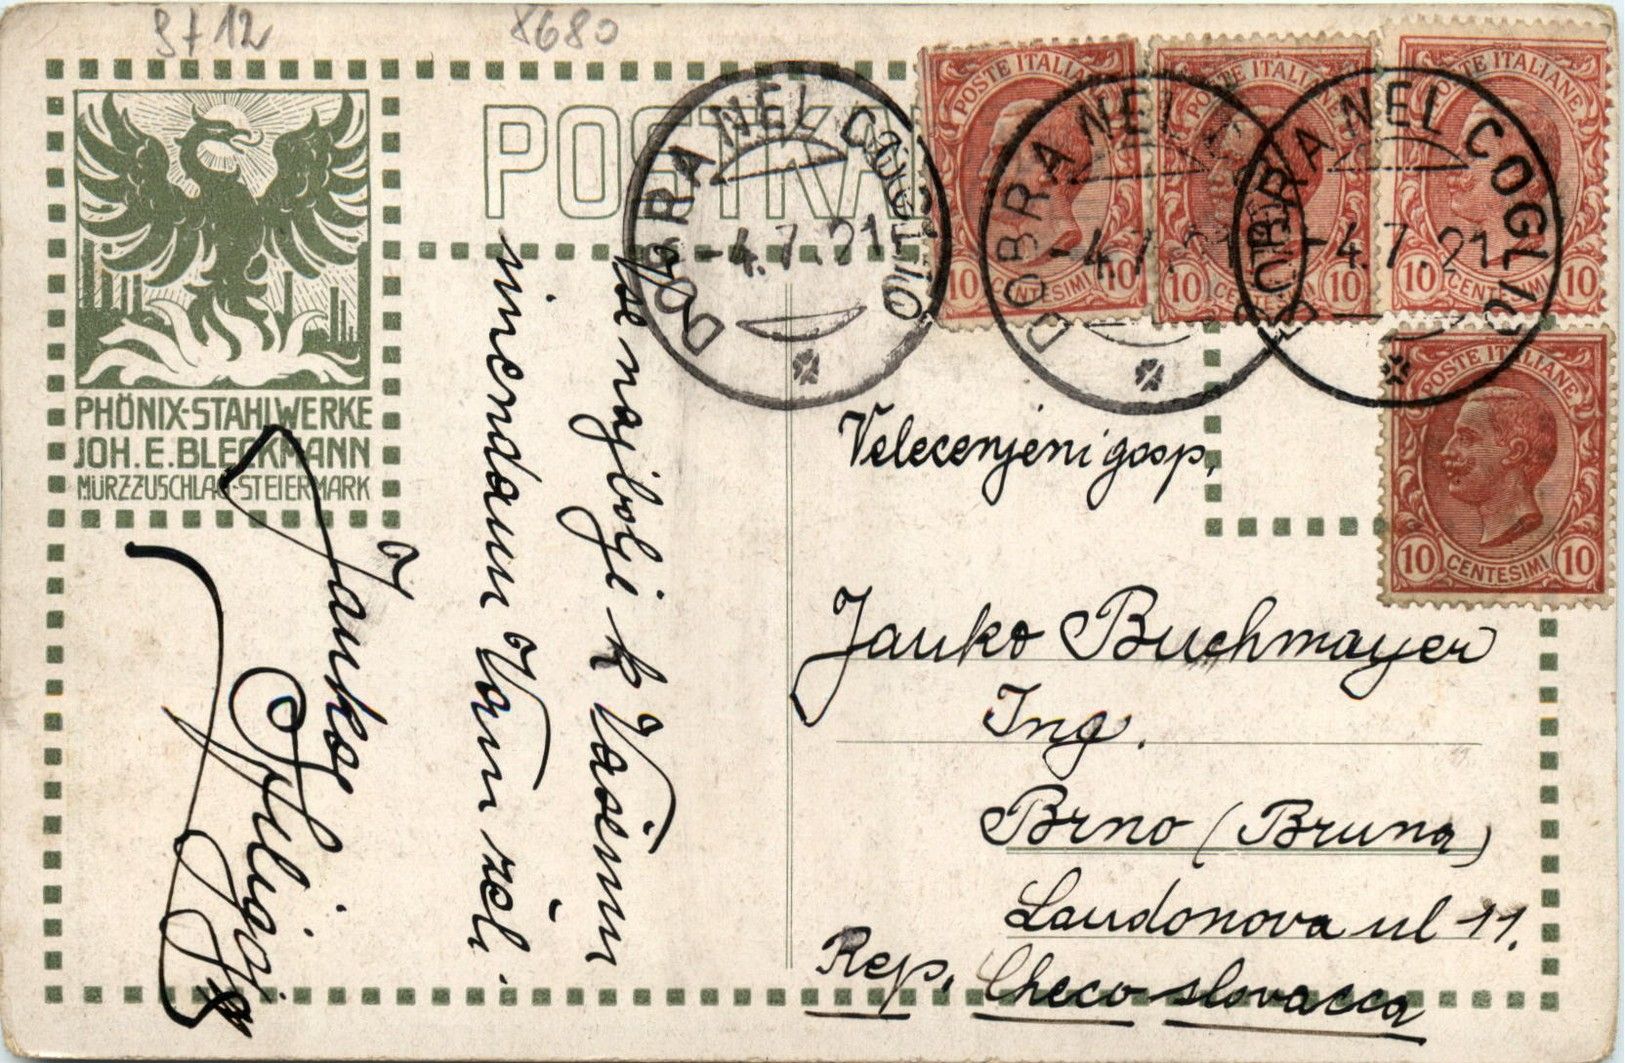 9712
8680
POSTKA
PHÖNIX-STAHLWERKE
JOH. E. BLECKMANN
MÜRZZUSCHLAG-STEIERMARK
DOBRA NEL COGLIO
-4.7.21
DOBRA NEL COGLIO
-4.7.21
DOBRA NEL COGLIO
-4.7.21
POSTE ITALIANE
10 CENTESIMI 10
POSTE ITALIANE
10 CENTESIMI 10
POSTE ITALIANE
10 CENTESIMI 10
POSTE ITALIANE
10 CENTESIMI 10
Vse najbolje k Vašemu
imendanu Vam želi
Janko
Velecenjeni gosp.
Janko Buchmayer
Ing.
Brno (Bruna)
Laudonova ul 11.
Rep. Checo slovacca